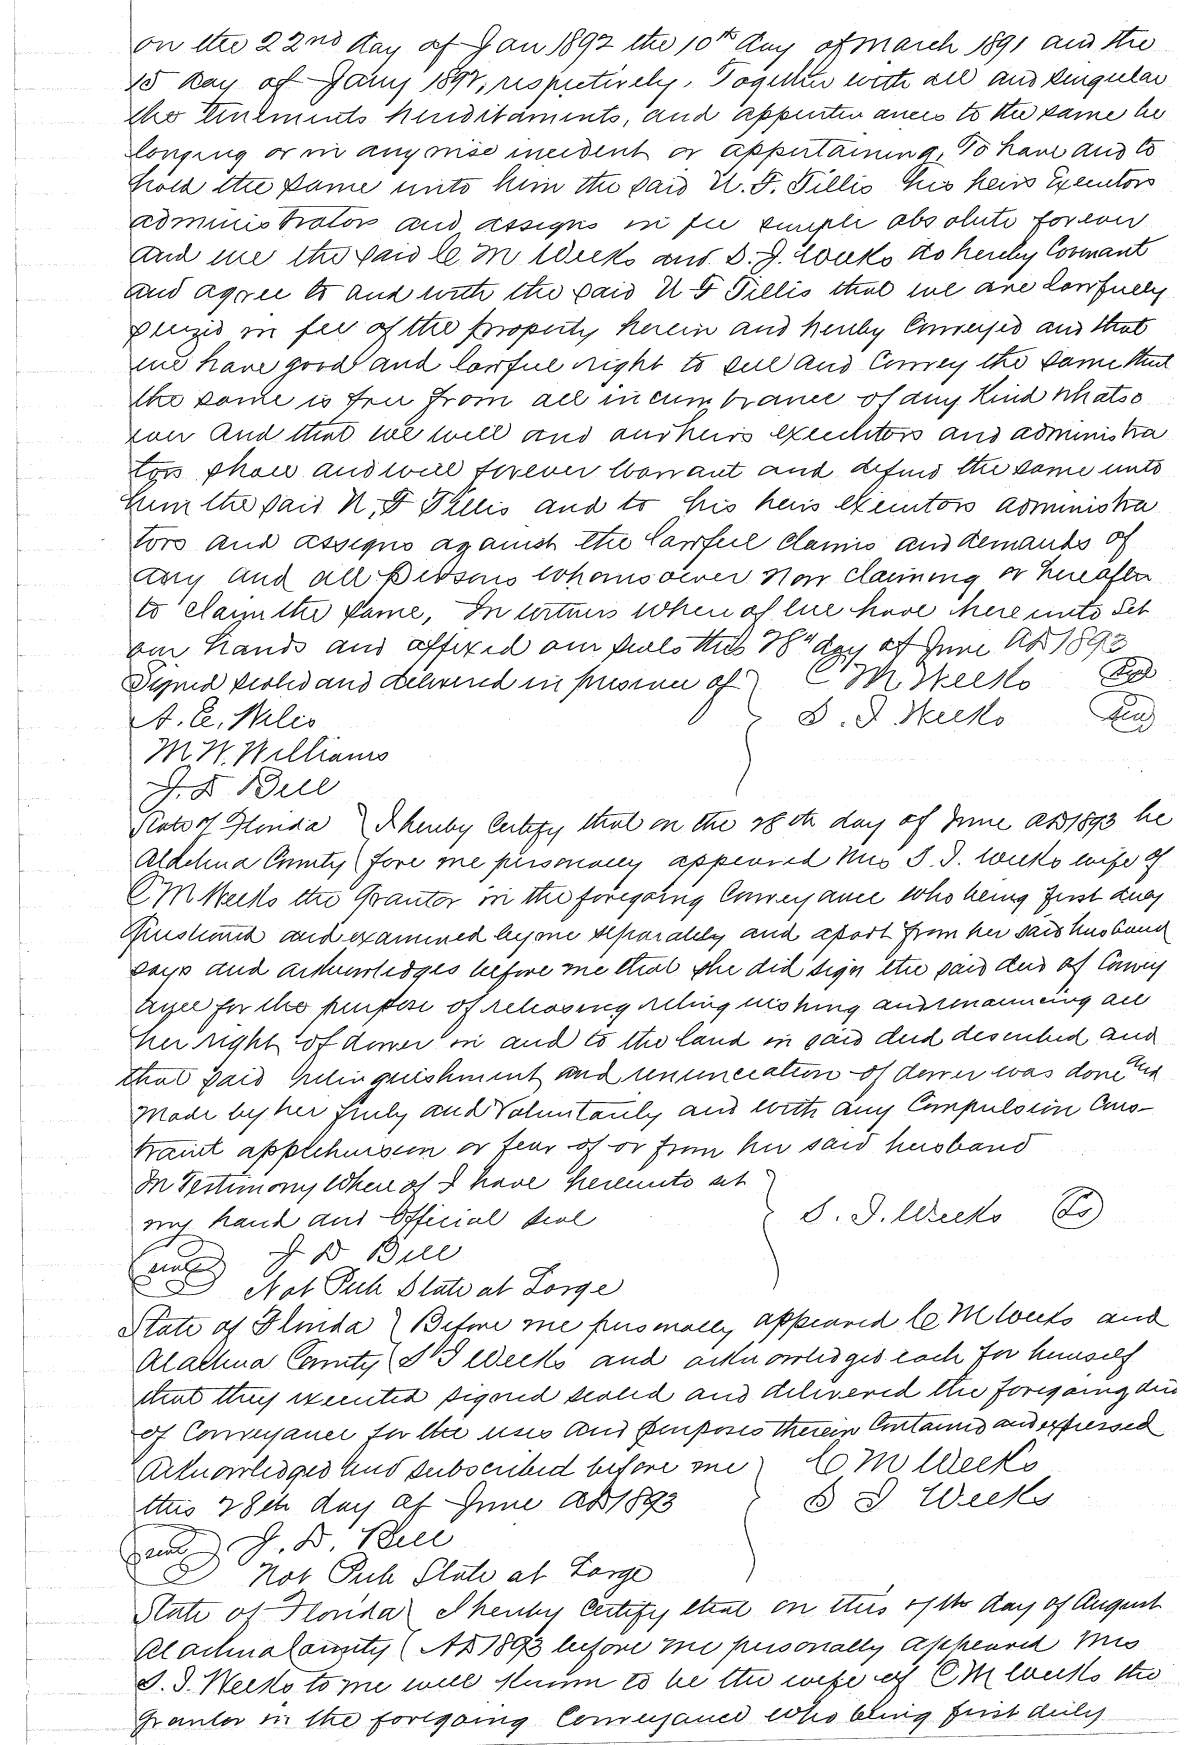 on the 22nd day of Jan 1892 the 10th day of March 1891 and the
15 day of Jany 1892, respectively. Together with all and singular
the tenements hereditaments, and appurtenances to the same be
longing or in anywise incident or appertaining, To have and to
hold the same unto him the said N. F. Tillis his heirs Executors
administrators and assigns in fee simple absolute forever
and we the said C M Weeks and S. J. Weeks do hereby Covenant
and agree to and with the said N F Tillis that we are lawfully
seized in fee of the property herein and hereby Conveyed and that
we have good and lawful right to sell and Convey the same that
the same is free from all incumbrance of any Kind whatso
ever And that we will and our heirs executors and administra
tors shall and will forever Warrant and defend the same unto
him the said N. F Tillis and to his heirs executors administra
tors and assigns against the lawful claims and demands of
any and all Persons whomsoever now claiming or hereafter
to claim the same, In witness where of we have here unto Set
our hands and affixed our seals this 28" day of June AD 1893
Signed sealed and delivered in presence of } C M Weeks (Seal)
A. E. Wilis } S. J Weeks (Seal)
M. W. Williams
J. D Bell
State of Florida } I hereby Certify that on the 28th day of June AD 1893 be
Alachua County } fore me personally appeared Mrs S. J. Weeks wife of
C M Weeks the Grantor in the foregoing Conveyance who being first duly
Questioned and examined by me separately and apart from her said husband
says and acknowledges before me that she did sign the said deed of Convey
ance for the purpose of releasing relinquishing and renouncing all
her right of dower in and to the land in said deed described and
that said relinquishment and renunciation of dower was done and
Made by her freely and Voluntarily and with any Compulsion Cons-
traint apprehension or fear of or from her said husband
In Testimony Where of I have hereunto set }
my hand and Official seal } S. J. Weeks (LS)
(seal) J D Bell
Not Pub State at Large
State of Florida } Before me personally appeared C M Weeks and
Alachua County } S J Weeks and acknowledged each for himself
that they executed signed sealed and delivered the foregoing deed
of Conveyance for the uses and purposes therein Contained and expressed
Acknowledged and subscribed before me } C M Weeks
this 28th day of June AD 1893 } S J Weeks
(seal) J. D. Bell
Not Pub State at Large
State of Florida } I hereby Certify that on this 7th day of August
Alachua County } AD 1893 before me personally appeared Mrs
S. J. Weeks to me well known to be the wife of C M Weeks the
Grantor in the foregoing Conveyance who being first duly